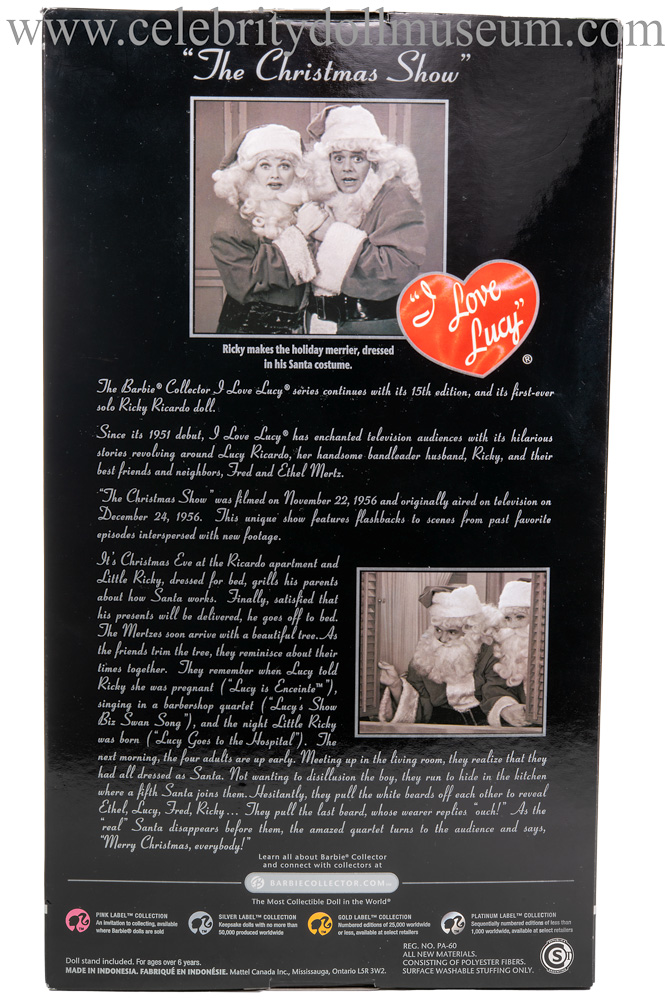 www.celebritydollmuseum.com
"The Christmas Show"
"I Love
Lucy"
®
Ricky makes the holiday merrier, dressed
in his Santa costume.
The Barbie® Collector I Love Lucy® series continues with its 15th edition, and its first-ever
solo Ricky Ricardo doll.
Since its 1951 debut, I Love Lucy® has enchanted television audiences with its hilarious
stories revolving around Lucy Ricardo, her handsome bandleader husband, Ricky, and their
best friends and neighbors, Fred and Ethel Mertz.
"The Christmas Show" was filmed on November 22, 1956 and originally aired on television on
December 24, 1956. This unique show features flashbacks to scenes from past favorite
episodes interspersed with new footage.
It's Christmas Eve at the Ricardo apartment and
Little Ricky, dressed for bed, grills his parents
about how Santa works. Finally, satisfied that
his presents will be delivered, he goes off to bed.
The Mertzes soon arrive with a beautiful tree. As
the friends trim the tree, they reminisce about their
times together. They remember when Lucy told
Ricky she was pregnant ("Lucy is Enceinte™"),
singing in a barbershop quartet ("Lucy's Show
Biz Swan Song"), and the night Little Ricky
was born ("Lucy Goes to the Hospital"). The
next morning, the four adults are up early. Meeting up in the living room, they realize that they
had all dressed as Santa. Not wanting to disillusion the boy, they run to hide in the kitchen
where a fifth Santa joins them. Hesitantly, they pull the white beards off each other to reveal
Ethel, Lucy, Fred, Ricky... They pull the last beard, whose wearer replies "ouch!" As the
"real" Santa disappears before them, the amazed quartet turns to the audience and says,
"Merry Christmas, everybody!"
Learn all about Barbie® Collector
and connect with collectors at
BARBIECOLLECTOR.COM
The Most Collectible Doll in the World®
PINK LABEL™ COLLECTION
An invitation to collecting, available
where Barbie® dolls are sold
SILVER LABEL™ COLLECTION
Keepsake dolls with no more than
50,000 produced worldwide
GOLD LABEL™ COLLECTION
Numbered editions of 25,000 worldwide
or less, available at select retailers
PLATINUM LABEL™ COLLECTION
Sequentially numbered editions of less than
1,000 worldwide, available at select retailers
Doll stand included. For ages over 6 years.
MADE IN INDONESIA. FABRIQUÉ EN INDONÉSIE. Mattel Canada Inc., Mississauga, Ontario L5R 3W2.
REG. NO. PA-60
ALL NEW MATERIALS.
CONSISTING OF POLYESTER FIBERS.
SURFACE WASHABLE STUFFING ONLY.
S